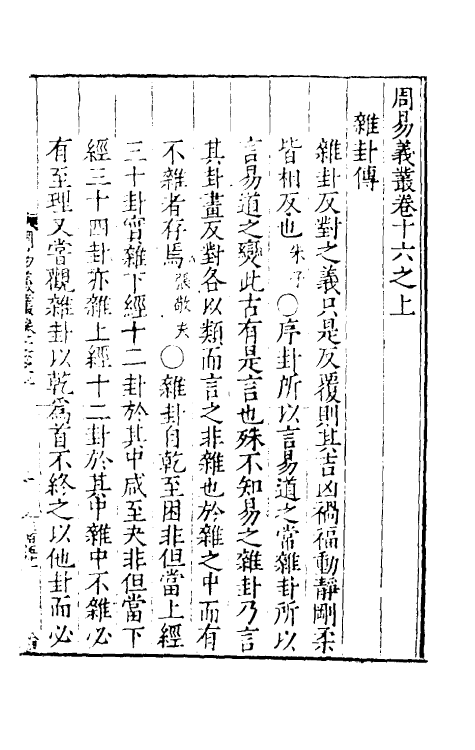 周易義叢卷十六之上
雜卦傳
雜卦反對之義只是反覆則其吉凶禍福動靜剛柔
皆相反也朱子〇序卦所以言易道之常雜卦所以
言易道之變此古有是言也殊不知易之雜卦乃言
其卦畫反對各以類而言之非雜也於雜之中而有
不雜者存焉張敬夫〇雜卦自乾至困非但當上經
三十卦實雜下經十二卦於其中咸至夬非但當下
經三十四卦亦雜上經十二卦於其中雜中不雜必
有至理又嘗觀雜卦以乾爲首不終之以他卦而必